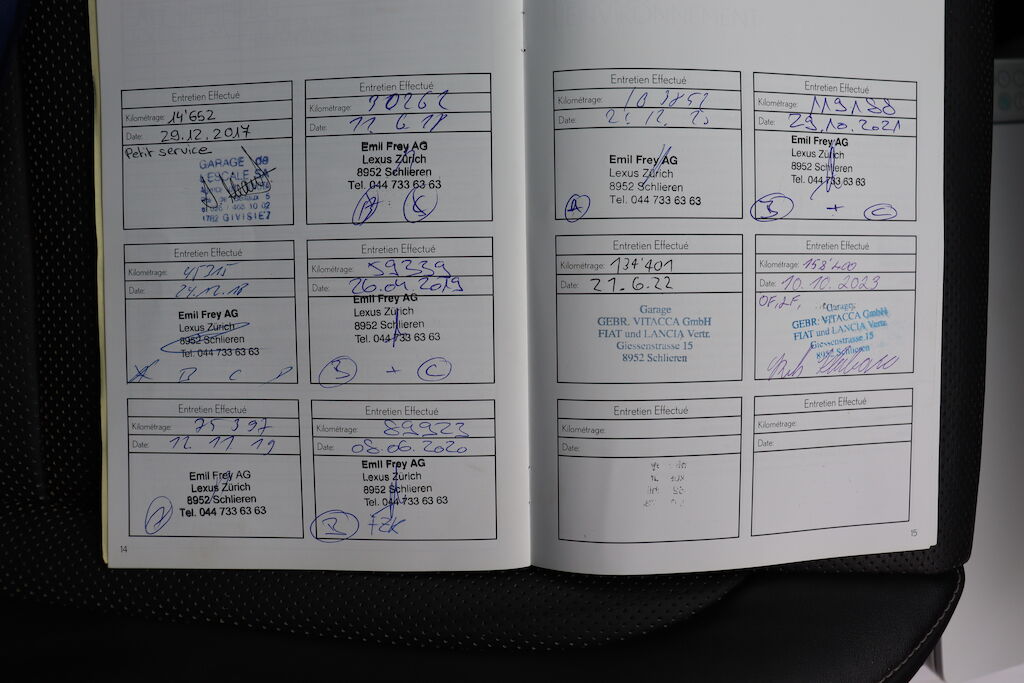 Entretien Effectué
Kilométrage: 14'652
Date: 29.12.2017
Petit service
GARAGE de
L'ESCALE SA
1762 GIVISIEZ
Entretien Effectué
Kilométrage: 30262
Date: 11 6 18
Emil Frey AG
Lexus Zürich
8952 Schlieren
Tel. 044 733 63 63
Entretien Effectué
Kilométrage: 45315
Date: 24.12.18
Emil Frey AG
Lexus Zürich
8952 Schlieren
Tel. 044 733 63 63
A B C D
Entretien Effectué
Kilométrage: 59339
Date: 26.04.2019
Emil Frey AG
Lexus Zürich
8952 Schlieren
Tel. 044 733 63 63
B + C
Entretien Effectué
Kilométrage: 75397
Date: 12 11 19
Emil Frey AG
Lexus Zürich
8952 Schlieren
Tel. 044 733 63 63
A
Entretien Effectué
Kilométrage: 89923
Date: 08.06.2020
Emil Frey AG
Lexus Zürich
8952 Schlieren
Tel. 044 733 63 63
B FZK
14
Entretien Effectué
Kilométrage: 103852
Date:
Emil Frey AG
Lexus Zürich
8952 Schlieren
Tel. 044 733 63 63
A
Entretien Effectué
Kilométrage: 119188
Date: 29.10.2021
Emil Frey AG
Lexus Zürich
8952 Schlieren
Tel. 044 733 63 63
B + C
Entretien Effectué
Kilométrage: 134'401
Date: 21.6.22
Garage
GEBR. VITACCA GmbH
FIAT und LANCIA Vertr.
Giessenstrasse 15
8952 Schlieren
Entretien Effectué
Kilométrage: 158'400
Date: 10.10.2023
OF, LF,
Garage
GEBR. VITACCA GmbH
FIAT und LANCIA Vertr.
Giessenstrasse 15
8952 Schlieren
Entretien Effectué
Kilométrage:
Date:
Entretien Effectué
Kilométrage:
Date:
15